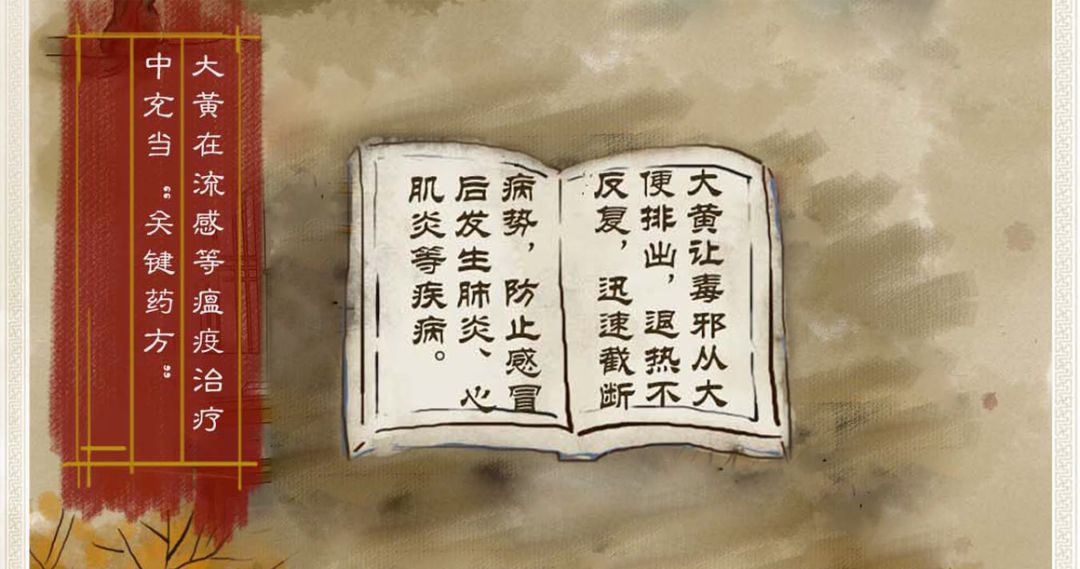 大黃在流感等瘟疫治疗
中充当“关键药方”
大黄让毒邪从大
便排出，退热不
反复，迅速截断
病势，防止感冒
后发生肺炎、心
肌炎等疾病。